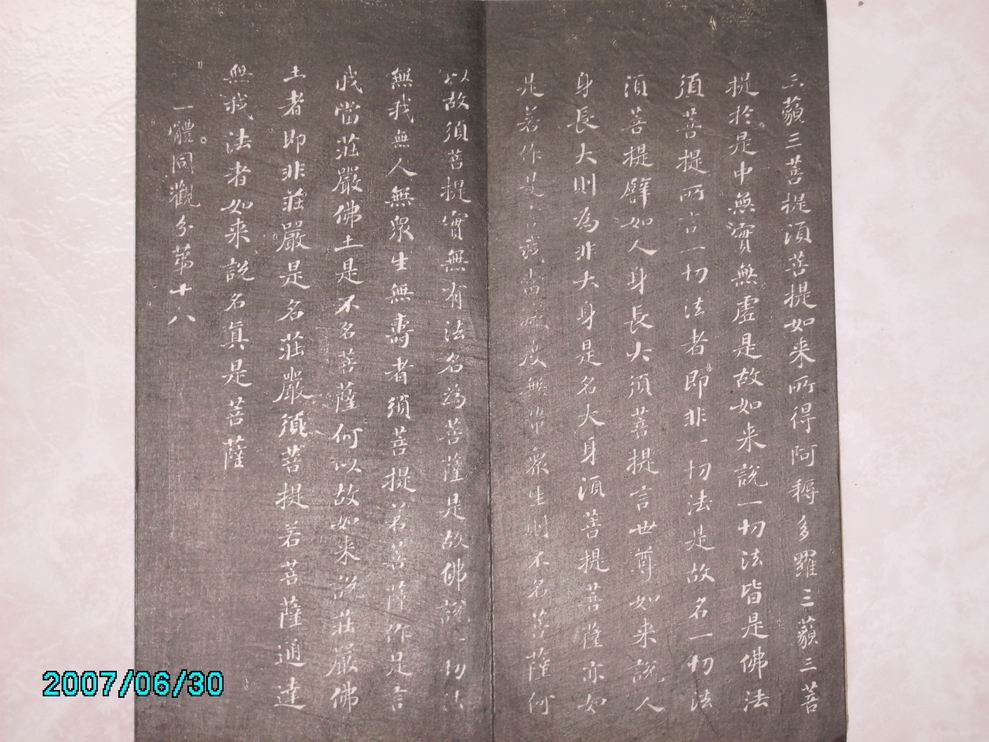 三藐三菩提須菩提如来所得阿耨多羅三藐三菩
提於是中無實無虛是故如来說一切法皆是佛法
須菩提所言一切法者即非一切法是故名一切法
須菩提譬如人身長大須菩提言世尊如来說人
身長大則為非大身是名大身須菩提菩薩亦如
是若作是言我當滅度無量眾生則不名菩薩何
以故須菩提實無有法名為菩薩是故佛說一切法
無我無人無眾生無壽者須菩提若菩薩作是言
我當莊嚴佛土是不名菩薩何以故如来說莊嚴佛
土者即非莊嚴是名莊嚴須菩提若菩薩通達
無我法者如来說名真是菩薩
一體同觀分第十八
2007/06/30